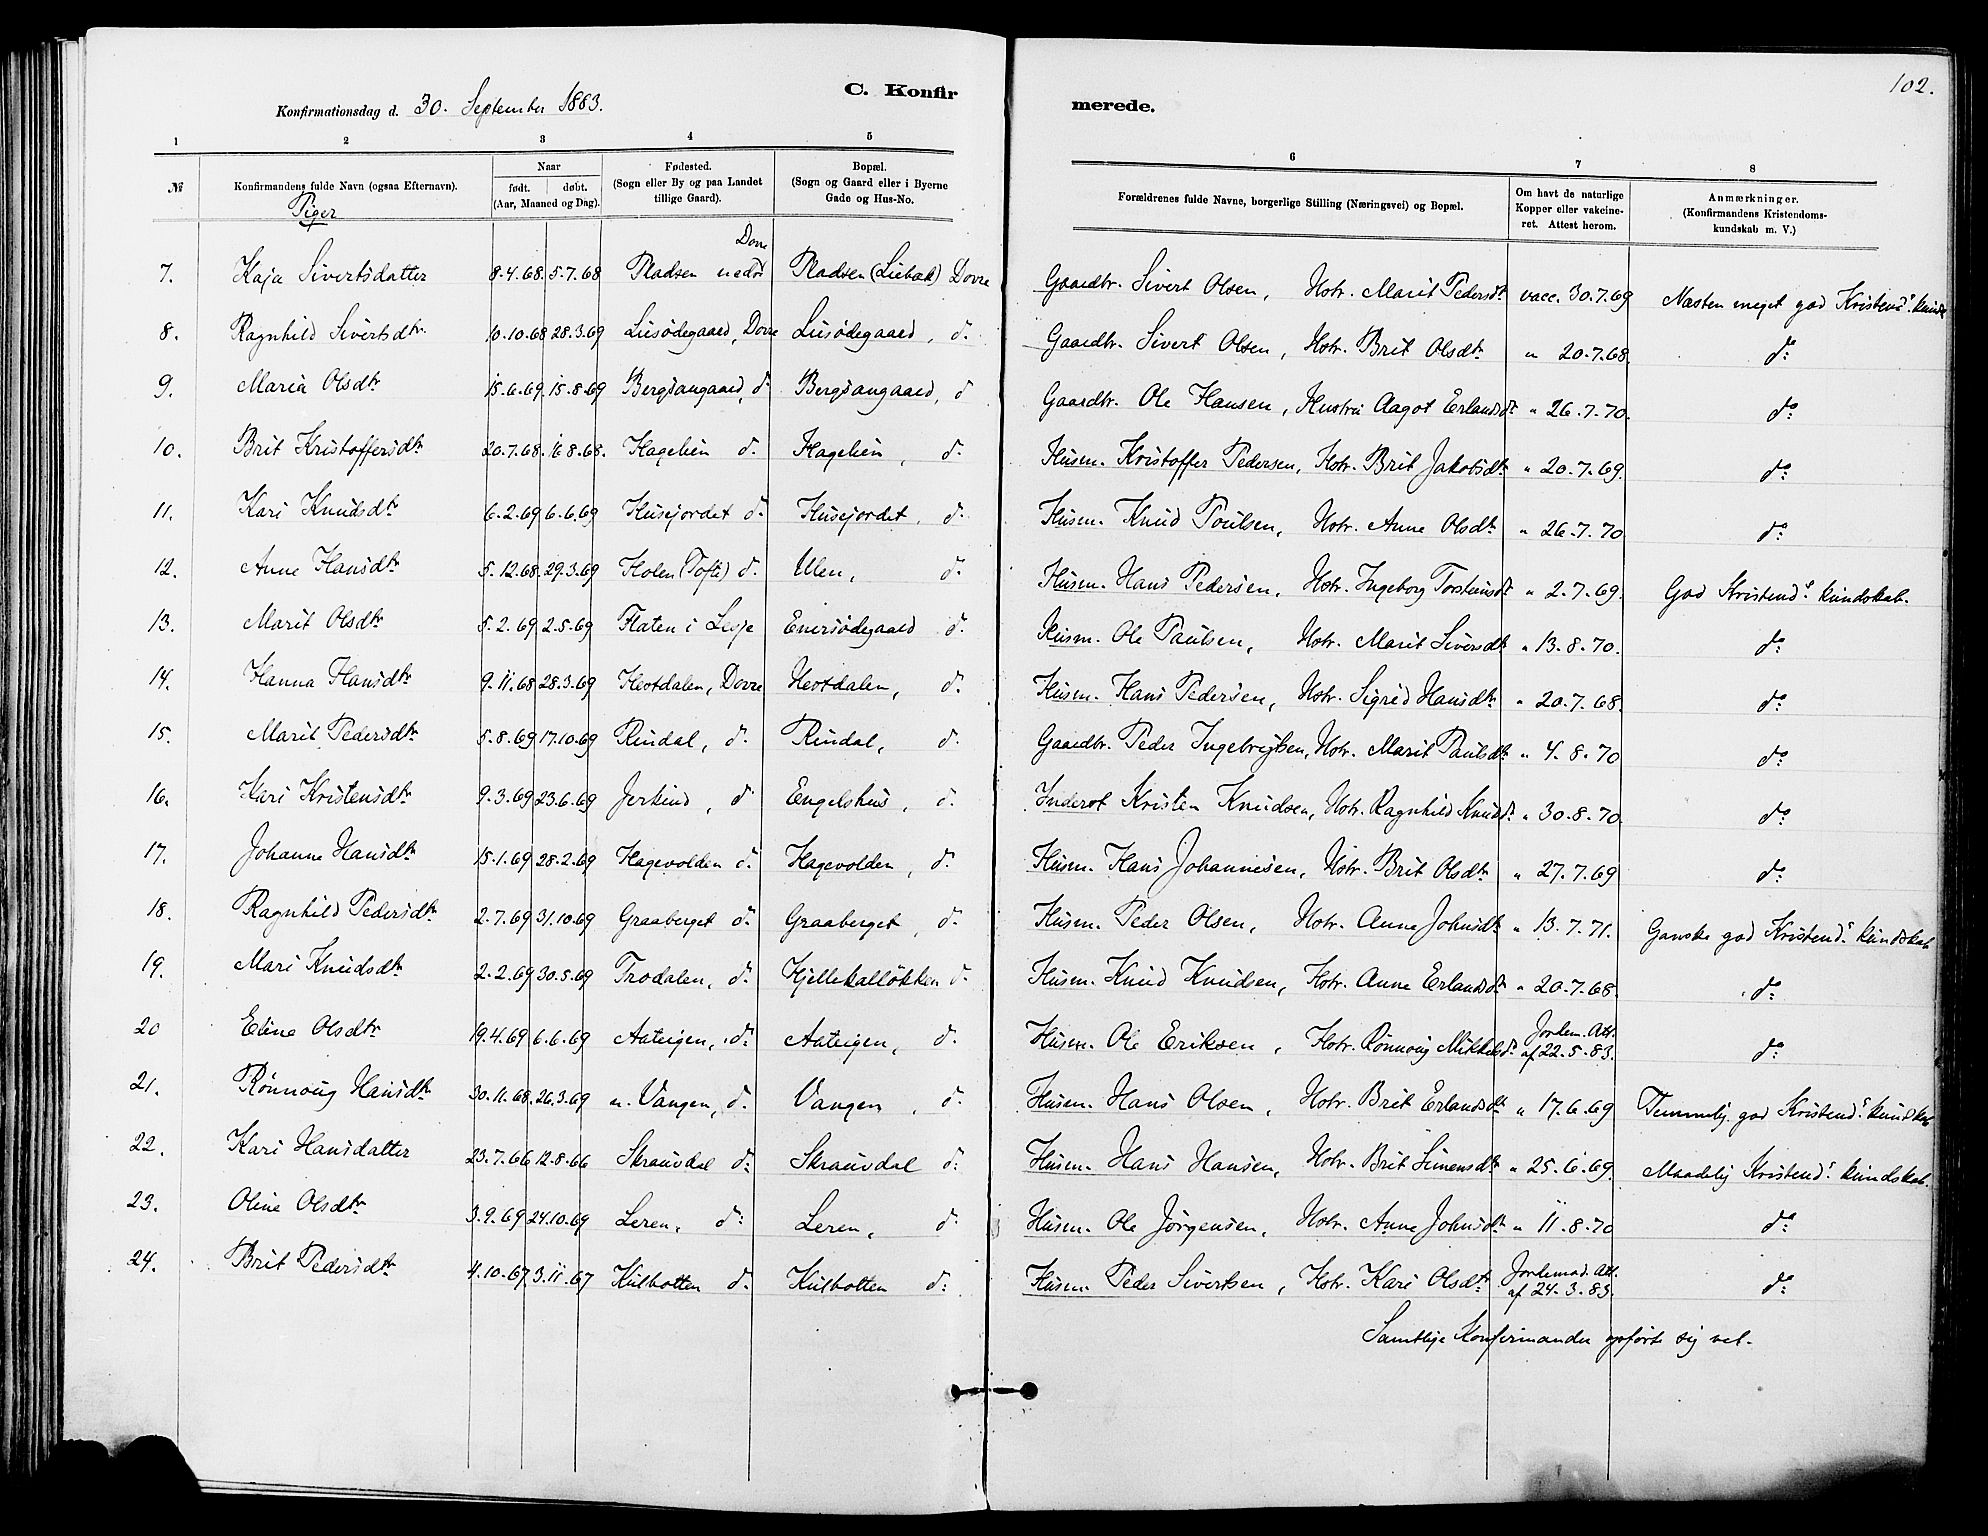 102.
C. Konfirmerede.
Konfirmationsdag d. 30. September 1883.
1 2 3 4 5 6 7 8
№ Konfirmandens fulde Navn (ogsaa Efternavn). Naar født. døbt. (Aar, Maaned og Dag). Fødested. (Sogn eller By og paa Landet tillige Gaard). Bopæl. (Sogn og Gaard eller i Byerne Gade og Hus-No. Forældrenes fulde Navne, borgerlige Stilling (Næringsvei) og Bopæl. Om havt de naturlige Kopper eller vakcineret. Attest herom. Anmærkninger. (Konfirmandens Kristendomskundskab m. V.)
Piger
7. Kaja Sivertsdatter 8.4.68. 5.7.68 Pladsen nedre Dovre Pladsen (Liebak) Dovre Gaardbr. Sivert Olsen, Hstr. Marit Pedersdtr vacc. 30.7.69 Næsten meget god Kristends. kundsk
8. Ragnhild Sivertsdtr. 10.10.68 28.3.69 Liesødegaard, Dovre Liesødegaard, do. Gaardbr. Sivert Olsen, Hstr. Brit Olsdtr " 20.7.68. do
9. Maria Olsdtr 15.6.69. 15.8.69 Bergsangaard, do Bergsangaard, do Gaardbr. Ole Hansen, Hustru Aagot Erlandsdtr " 26.7.70. do
10. Brit Kristoffersdtr 20.7.68. 16.8.68. Hagelien do. Hagelien, do. Husm. Kristoffer Pedersen, Hstr. Brit Jakobsdtr " 20.7.69. do
11. Kari Knudsdtr 6.2.69 6.6.69 Husejordet do. Husejordet, do. Husm. Knud Poulsen, Hstr. Anne Olsdtr " 26.7.70 do
12. Anne Hansdtr 5.12.68. 29.3.69 Holen (Tofte) do. Ulen, do. Husm. Hans Pedersen, Hstr. Ingeborg Torsteinsdtr " 2.7.69. God Kristends kundskab.
13. Marit Olsdtr 5.2.69 2.5.69 Flaten i Lesje Enersødegaard do. Husm. Ole Paulsen, Hstr. Marit Siversdtr " 13.8.70. do
14. Hanna Hansdtr 9.11.68 28.3.69 Hestdalen, Dovre Hestdalen, do. Husm. Hans Pedersen, Hstr. Sigrid Hansdtr " 20.7.68. do
15. Marit Pedersdtr 5.8.69 17.10.69 Rindal, do. Rindal, do. Gaardbr. Peder Ingebrigtsen, Hstr. Marit Paulsdtr " 4.8.70 do
16. Kari Kristensdtr 9.3.69 23.6.69 Jerkind, do Engelshus, do. Inderst Kristen Knudsen, Hstr. Ragnhild Knudsd. " 30.8.70. do
17. Johanne Hansdtr 15.1.69 28.2.69 Hagevolden do. Hagevolden, do. Husm. Hans Johannesen, Hstr. Brit Olsdtr " 27.7.69 do
18. Ragnhild Pedersdtr 2.7.69 31.10.69 Graaberget do. Graaberget, do. Husm. Peder Olsen, Hstr. Anne Johnsdtr " 13.7.71. Ganske god Kristends. kundskab
19. Mari Knudsdtr 2.2.69 30.5.69 Trodalen, do. Kjellekalløkken do. Husm. Knud Knudsen, Hstr. Anne Erlandsdtr " 20.7.68. do
20 Eline Olsdtr 19.4.69 6.6.69 Aateigen, do. Aateigen, do. Husm. Ole Eriksen, Hstr. Rønnoug Mikkelsd. Jordem. Att. af 22.5.83. do
21. Rønnoug Hansdtr 30.11.68. 26.3.69 n. Vangen, do. Vangen, do. Husm. Hans Olsen, Hstr. Brit Erlandsdtr " 17.6.69 Temmelig god Kristends. kundskab
22. Kari Hansdatter 23.7.66 12.8.66 Skrauvdal do. Skrauvdal do. Husm. Hans Hansen, Hstr. Brit Simensdtr " 25.6.69. Maadelig Kristends. kundskab.
23. Oline Olsdtr 3.9.69 24.10.69 Leren, do. Leren, do. Husm. Ole Jørgensen, Hstr. Anne Johnsdtr " 11.8.70 do
24. Brit Pedersdtr 4.10.67 3.11.67 Kulbotten do. Kulbotten do. Husm. Peder Sivertsen, Hstr. Kari Olsdtr Jordemod. Att. af 24.3.83. do
Samtlige Konfirmander opførte sig vel.